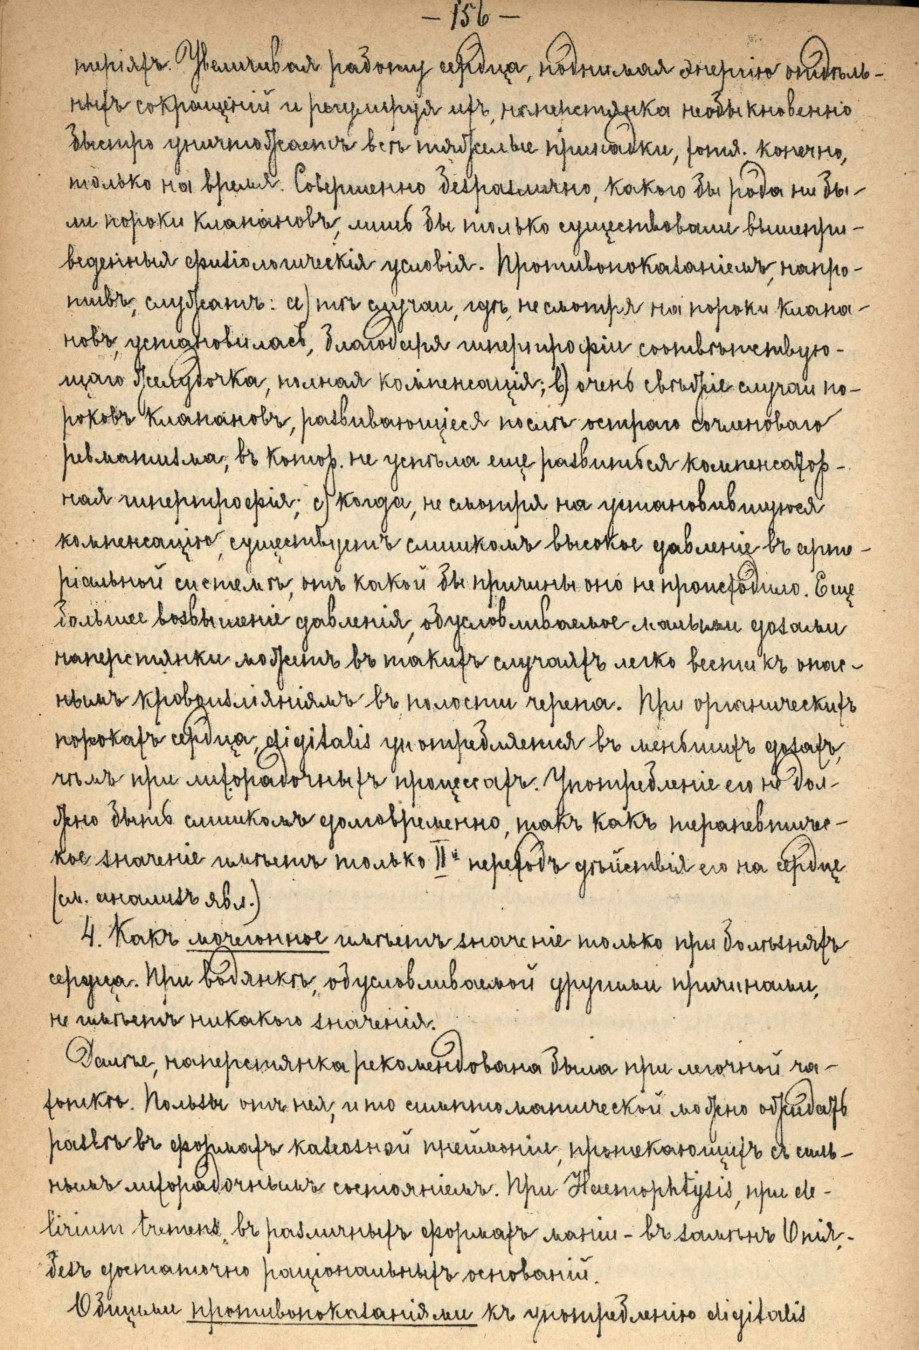 — 156 —
теріяхъ. Увеличивая работу сердца, поднимая энергію отдѣль-
ныхъ сокращеній и регулируя ихъ, наперстянка необыкновенно
быстро уничтожаетъ всѣ тяжелые припадки, хотя. конечно,
только на время. Совершенно безразлично, какого бы рода ни бы-
ли пороки клапановъ, лишь бы только существовали вышепри-
веденныя физіологическія условія. Противопоказаніемъ, напро-
тивъ, служатъ: a) тѣ случаи, гдѣ, не смотря на пороки клапа-
новъ, установилась, благодаря гипертрофіи соотвѣтствую-
щаго желудочка, полная компенсація; b) очень свѣжіе случаи по-
роковъ клапановъ, развивающіеся послѣ остраго сочленоваго
ревматизма, въ котор. не успѣла еще развиться компенсатор-
ная гипертрофія; c) когда, не смотря на установившуюся
компенсацію, существуетъ слишкомъ высокое давленіе въ арте-
ріальной системѣ, отъ какой бы причины оно не происходило. Еще
большее возвышеніе давленія, обусловливаемое малыми дозами
наперстянки можетъ въ такихъ случаяхъ легко вести къ опас-
нымъ кровоизліяніямъ въ полости черепа. При органическихъ
порокахъ сердца, digitalis употребляется въ меньшихъ дозахъ,
чѣмъ при лихорадочныхъ процессахъ. Употребленіе его не дол-
жно быть слишкомъ долговременно, такъ какъ терапевтичес-
кое значеніе имѣетъ только IIй переходъ дѣйствія его на сердце
(см. анализъ явл.)
4. Какъ мочегонное имѣетъ значеніе только при болѣзняхъ
сердца. При водянкѣ, обусловливаемой другими причинами,
не имѣетъ никакого значенія.
Далѣе, наперстянка рекомендована была при легочной ча-
хоткѣ. Пользы отъ нея, и то симптоматической можно ожидать
развѣ въ формахъ казеозной пнеймоніи, протекающихъ съ силь-
нымъ лихорадочнымъ состояніемъ. При Haemophtysis, при de-
lirium tremens, въ различныхъ формахъ маніи - въ замѣнъ Опія,-
безъ достаточно раціональныхъ основаній.
Общими противопоказаніями къ употребленію digitalis